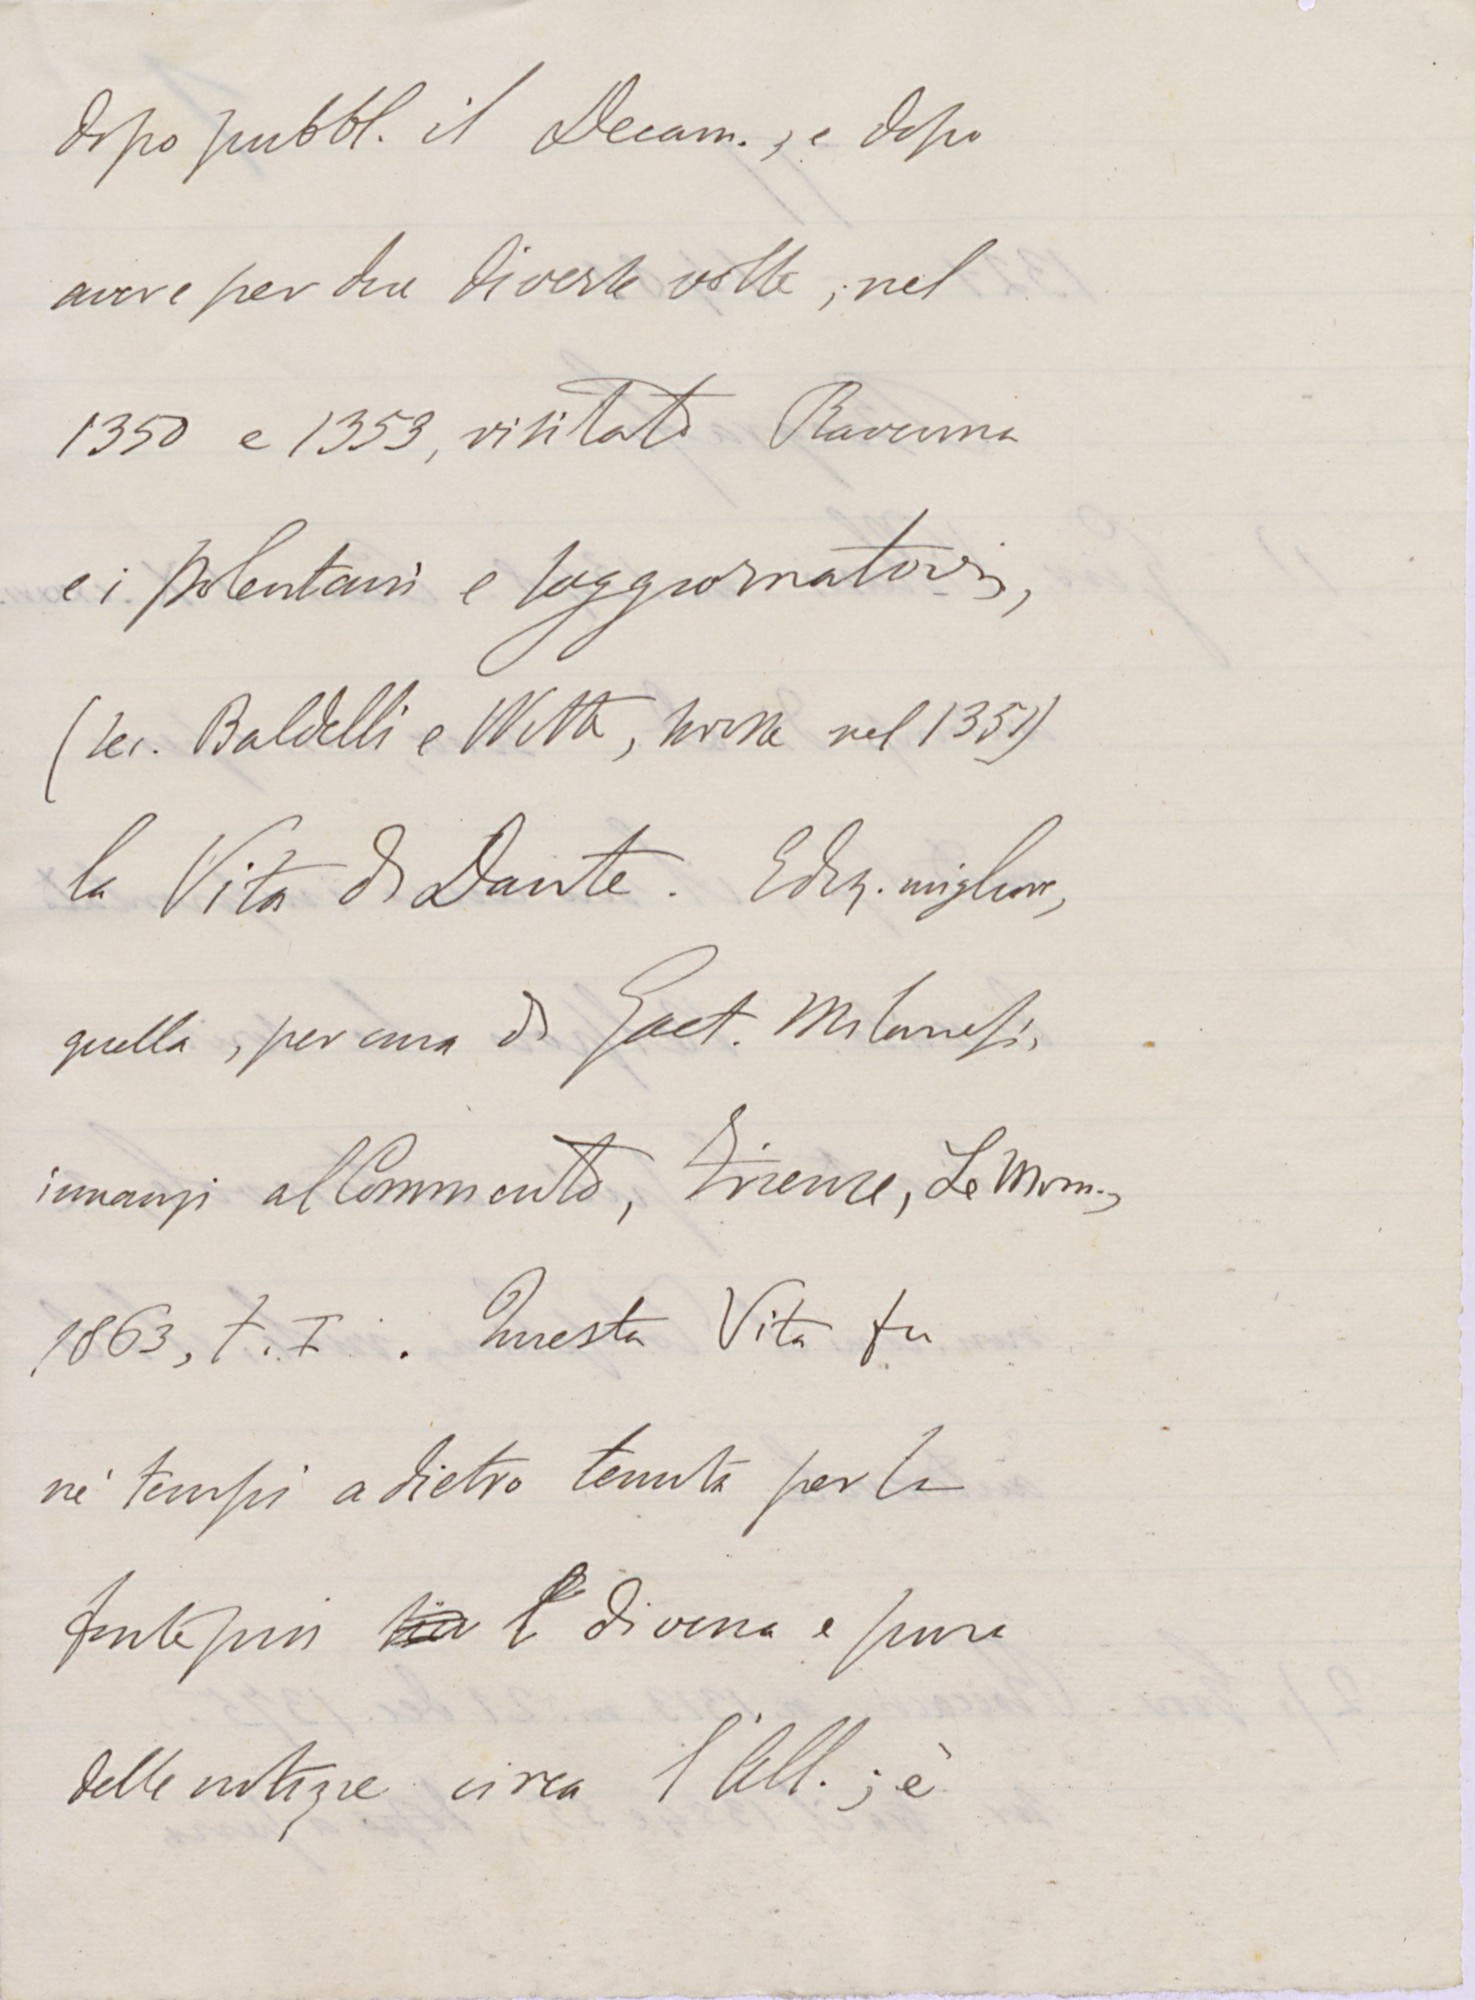 dopo pubbl. il Decam., e dopo
avere per due diverse volte, nel
1350 e 1353, visitato Ravenna
e i Polentani e soggiornatovi,
(sec. Baldelli e Witte, scrisse nel 1351)
la Vita di Dante. Ediz. migliore,
quella, per cura di Gaet. Milanesi,
innanzi al Commento, Firenze, Le Monn.,
1863, t. I. Questa Vita fu
nè tempi a dietro tenuta per la
fonte più divena e pura
delle notizie circa l'All.; è